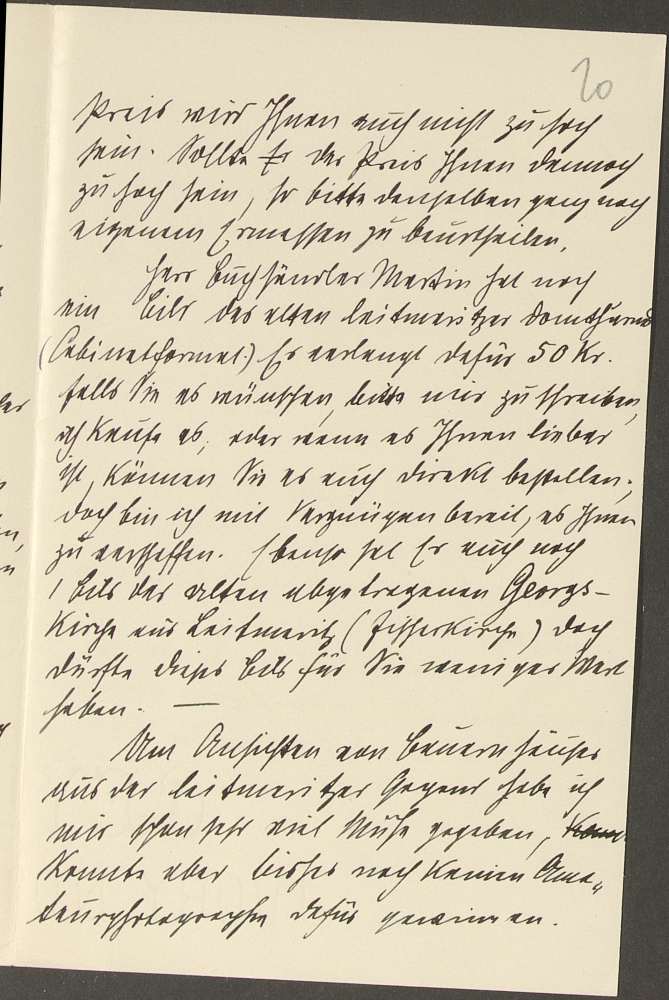 20
Preis wird Ihnen auch nicht zu hoch
sein. Sollte Er der Preis Ihnen dennoch
zu hoch sein, so bitte denselben ganz nach
eigenem Ermessen zu beurtheilen.
Herr Buchhändler Martin hat noch
ein Bild des alten leitmeritzer Domthurms
(Cabinetformat.) Er verlangt dafür 50 Kr.
falls Sie es wünschen, bitte mir zu schreiben,
ich kaufe es, oder wenn es Ihnen lieber
ist, können Sie es auch direkt bestellen.,
doch bin ich mit Vergnügen bereit, es Ihnen
zu verschaffen. Ebenso hat Er auch noch
1 Bild der alten abgetragenen Georgs-
kirche aus Leitmeritz (Fischerkirche) doch
dürfte dieses Bild für Sie weniger Wert
haben. —
Um Ansichten von Bauernhäuser
aus der leitmeritzer Gegend habe ich
mir schon sehr viel Mühe gegeben,
konnte aber bisher noch keinen Ama„
teurphotographen dafür gewinnen.